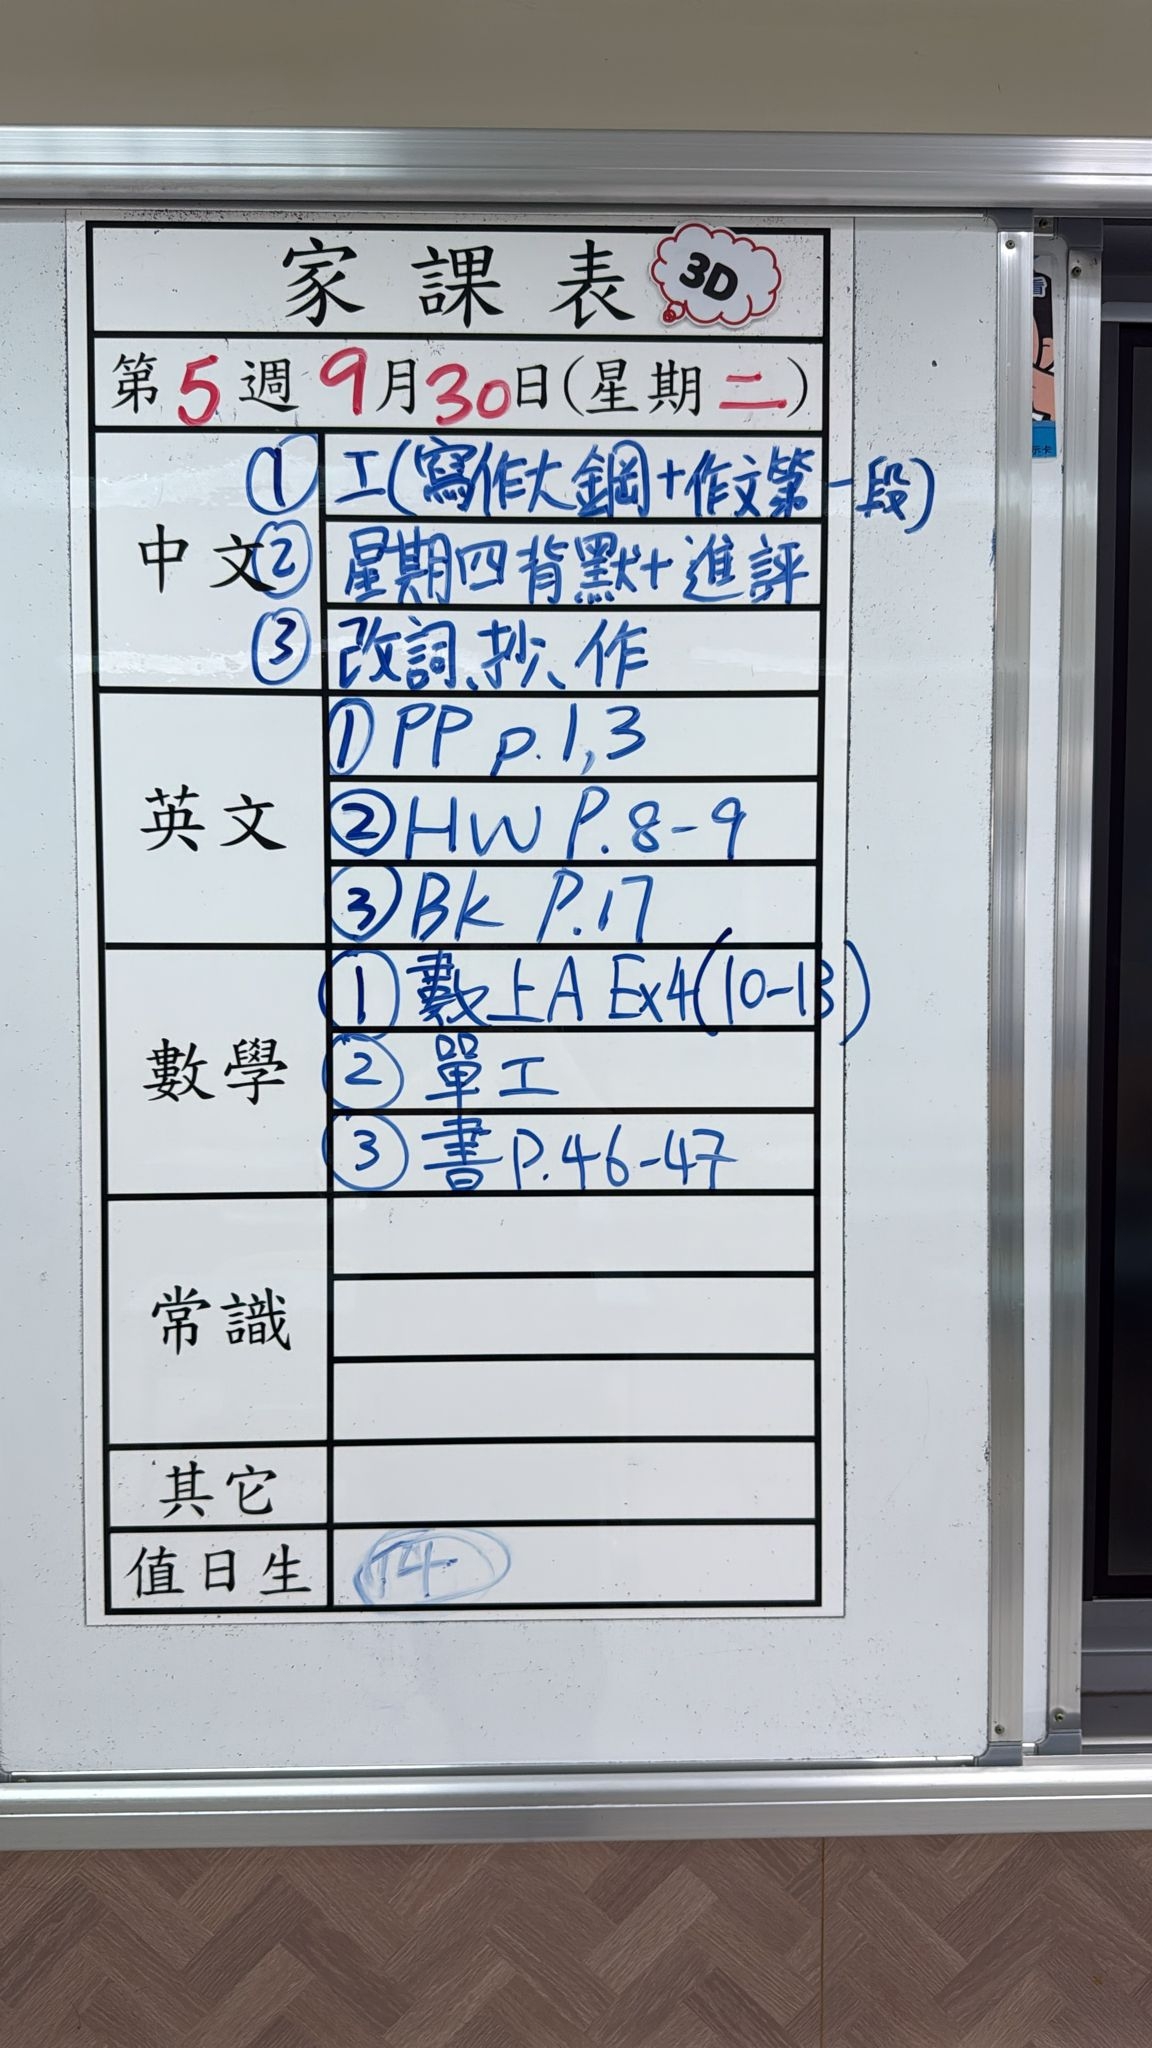 家課表 3D
第5週 9月30日(星期二)
中文
① 工(寫作大鋼+作文第一段)
② 星期四背默+進評
③ 改詞、抄、作
英文
① PP p.1,3
② HW P.8-9
③ BK P.17
數學
① 數上A Ex4(10-13)
② 單工
③ 書P.46-47
常識
其它
值日生 14